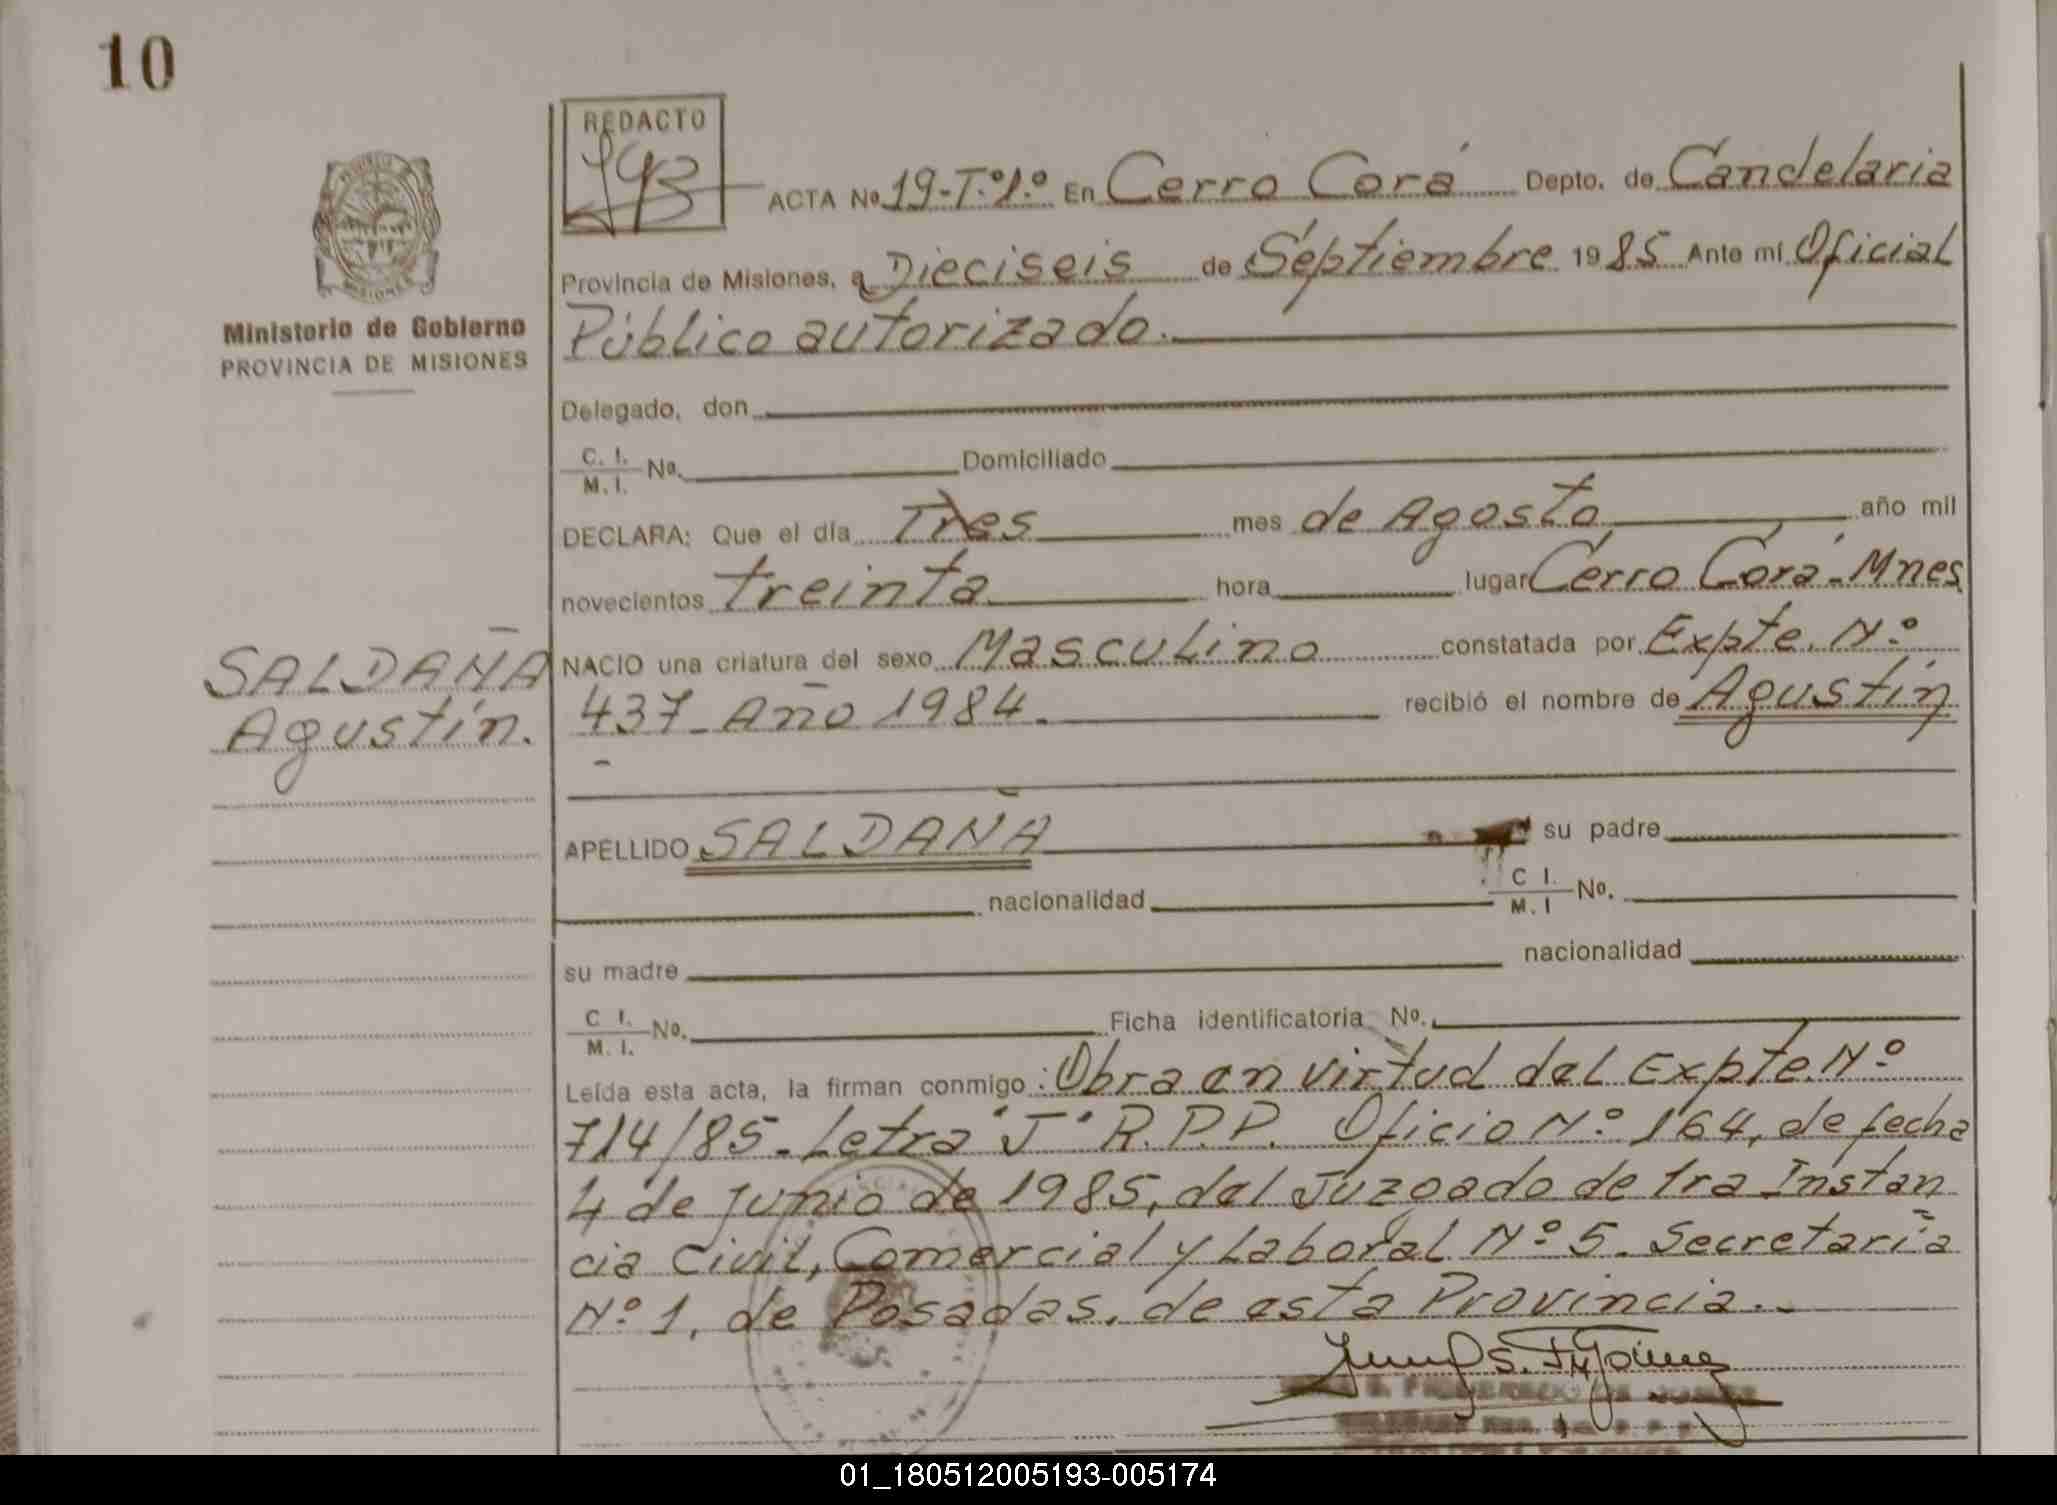 10
REDACTO
ACTA Nº 19-T.º1.º En Cerro Corá Depto. de Candelaria
Provincia de Misiones, a Dieciseis de Septiembre 1985 Ante mí Oficial
Público autorizado.
Ministerio de Gobierno
PROVINCIA DE MISIONES
Delegado, don
C. I.
M. I. No. Domiciliado
DECLARA: Que el día Tres mes de Agosto año mil
novecientos treinta hora lugar Cerro Corá - Mnes
SALDAÑA
Agustín.
NACIO una criatura del sexo Masculino constatada por Expte. Nº
437 - Año 1984. recibió el nombre de Agustín
APELLIDO SALDAÑA su padre
nacionalidad C I. M. I No.
su madre nacionalidad
C I. M. I. No. Ficha identificatoria No.
Leída esta acta, la firman conmigo: Obra en virtud del Expte. Nº
714/85 - Letra "J" R.P.P. Oficio Nº 164, de fecha
4 de Junio de 1985, del Juzgado de 1ra Instan
cia Civil, Comercial y Laboral Nº 5. Secretaría
Nº 1, de Posadas, de esta Provincia.-
01_180512005193-005174